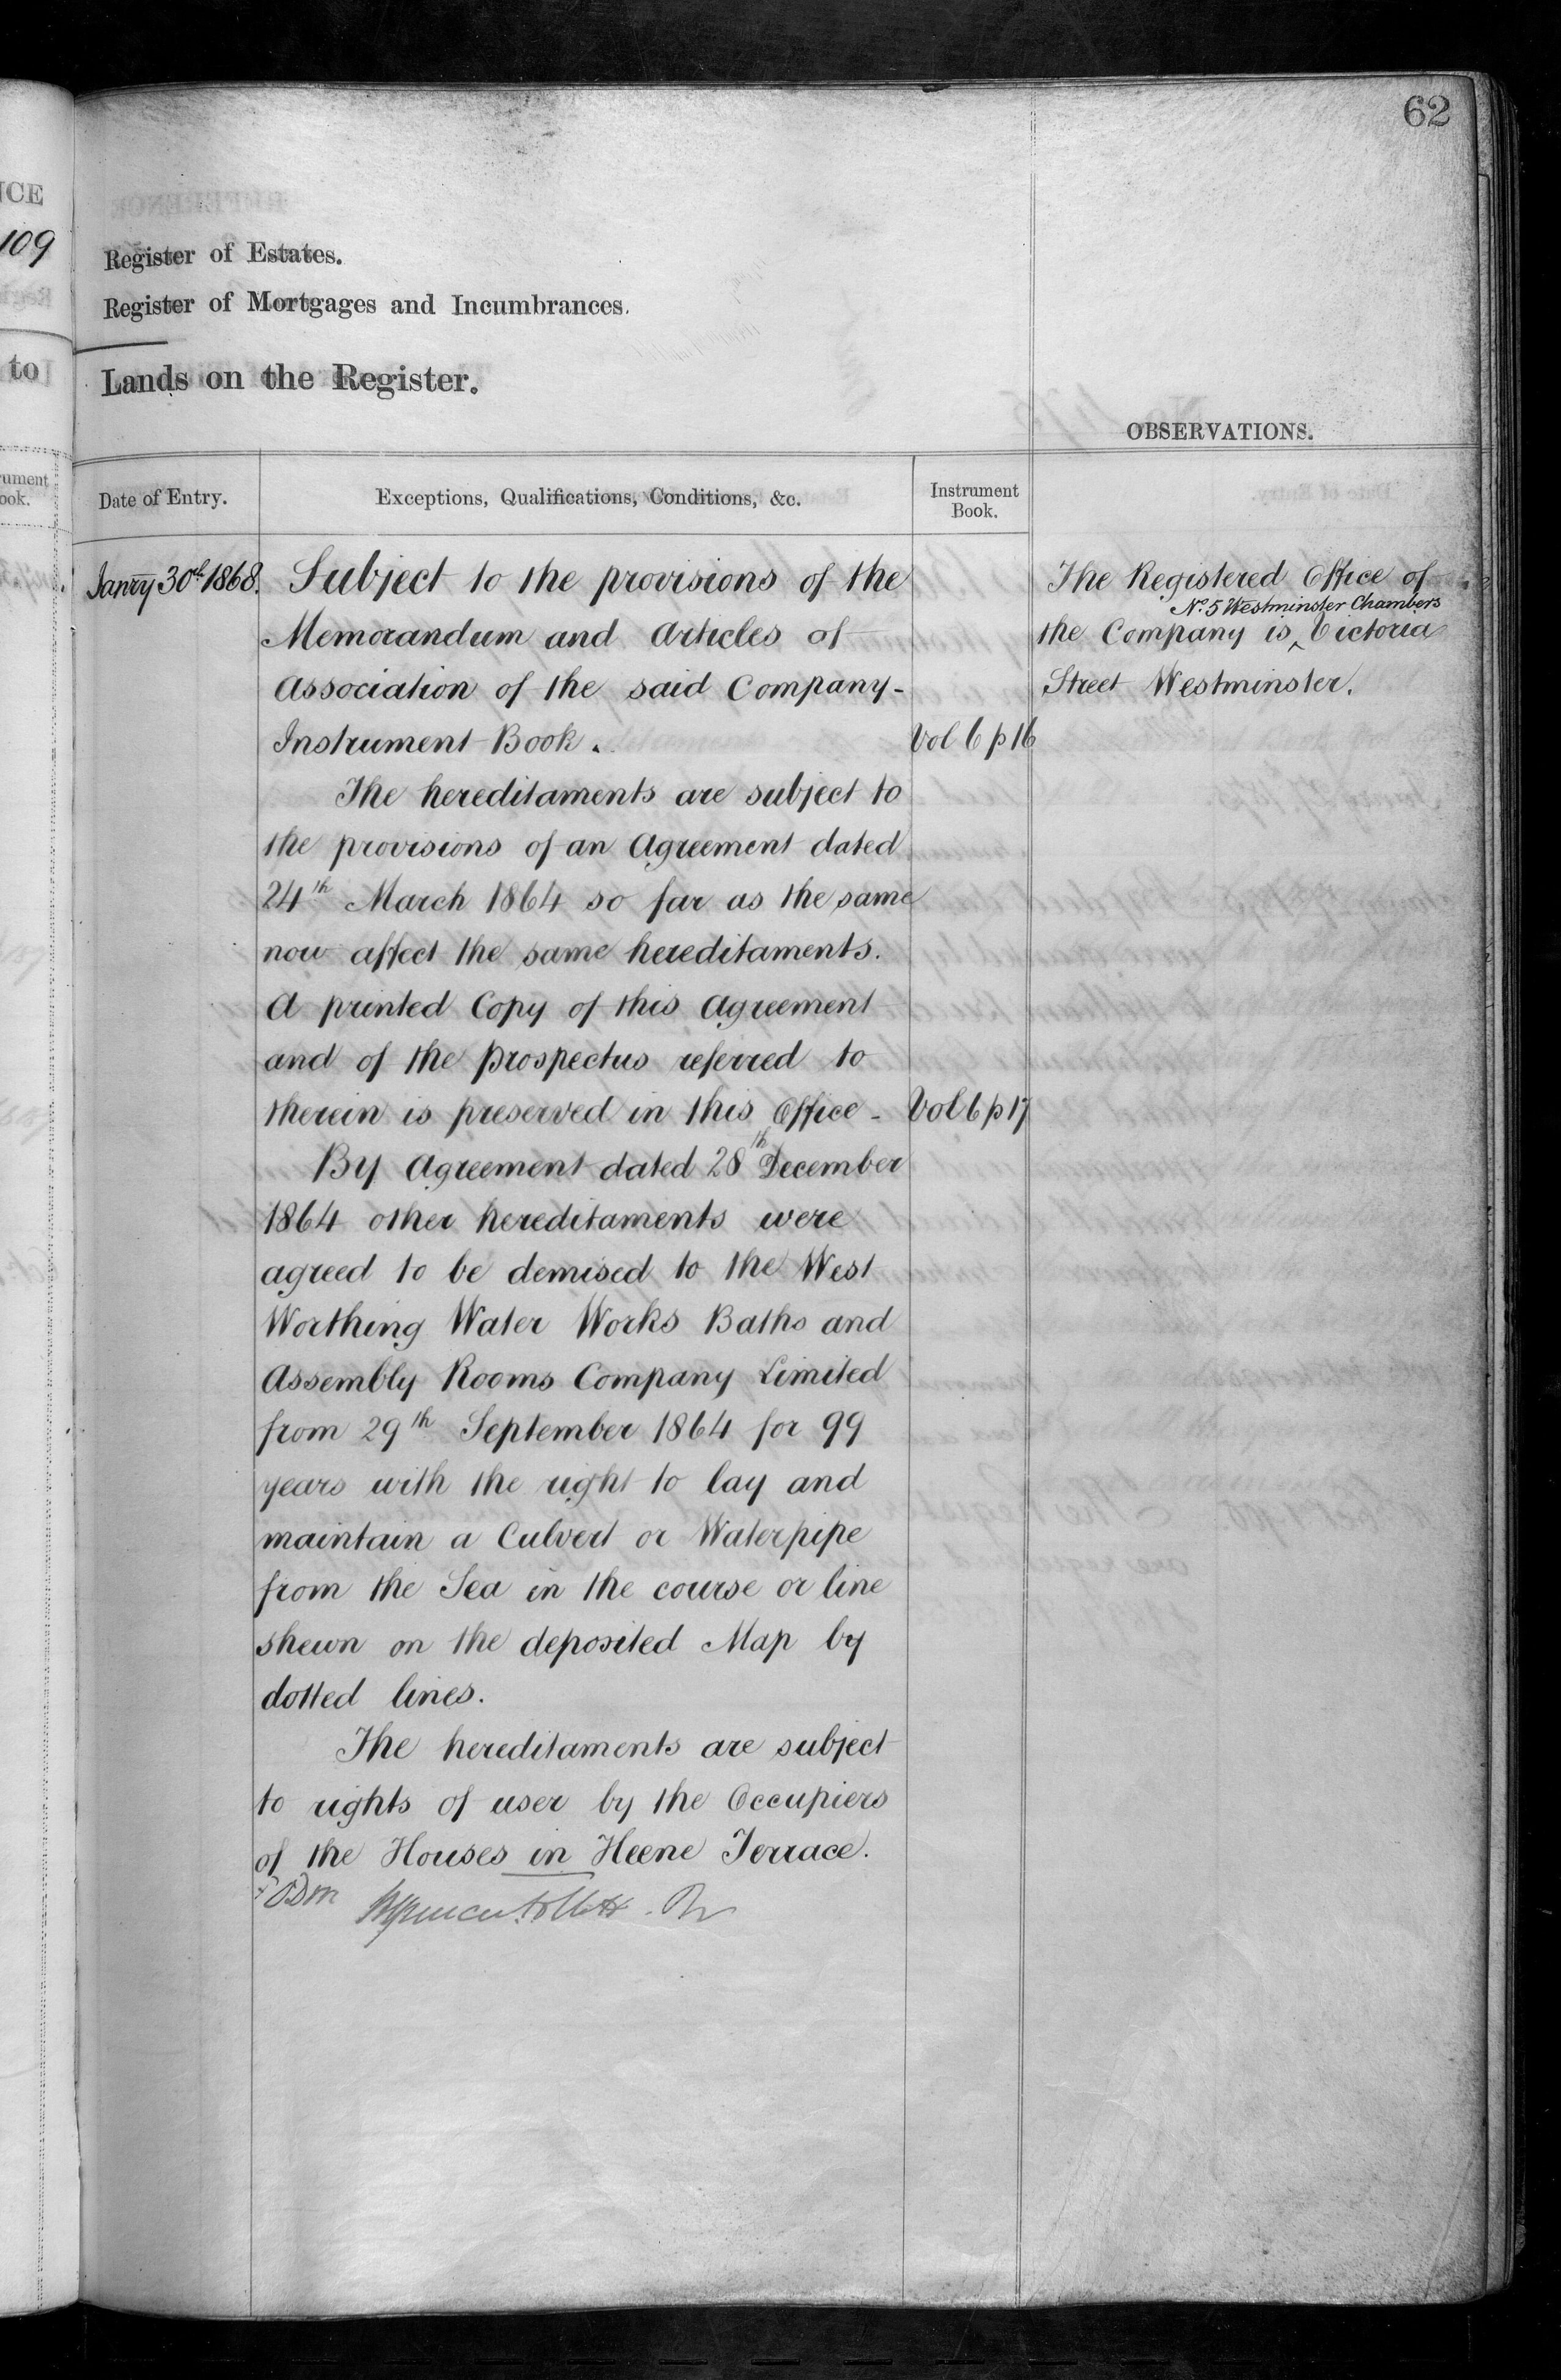 62
NCE
109
to
Register of Estates.
Register of Mortgages and Incumbrances.
Lands on the Register.
OBSERVATIONS.
Date of Entry.
Exceptions, Qualifications, Conditions, &c.
Instrument
Book.
Janry 30th 1868.
Subject to the provisions of the
Memorandum and Articles of
Association of the said Company-
Instrument Book.
Vol 6 p 16
The hereditaments are subject to
the provisions of an Agreement dated
24th March 1864 so far as the same
now affect the same hereditaments.
A printed Copy of this Agreement
and of the Prospectus referred to
therein is preserved in this Office -
Vol 6 p 17
By Agreement dated 28th December
1864 other hereditaments were
agreed to be demised to the West
Worthing Water Works Baths and
Assembly Rooms Company Limited
from 29th September 1864 for 99
years with the right to lay and
maintain a Culvert or Waterpipe
from the Sea in the course or line
shewn on the deposited Map by
dotted lines.
The hereditaments are subject
to rights of user by the Occupiers
of the Houses in Heene Terrace.
The Registered Office of
No. 5 Westminster Chambers
the Company is ‸ Victoria
Street Westminster.